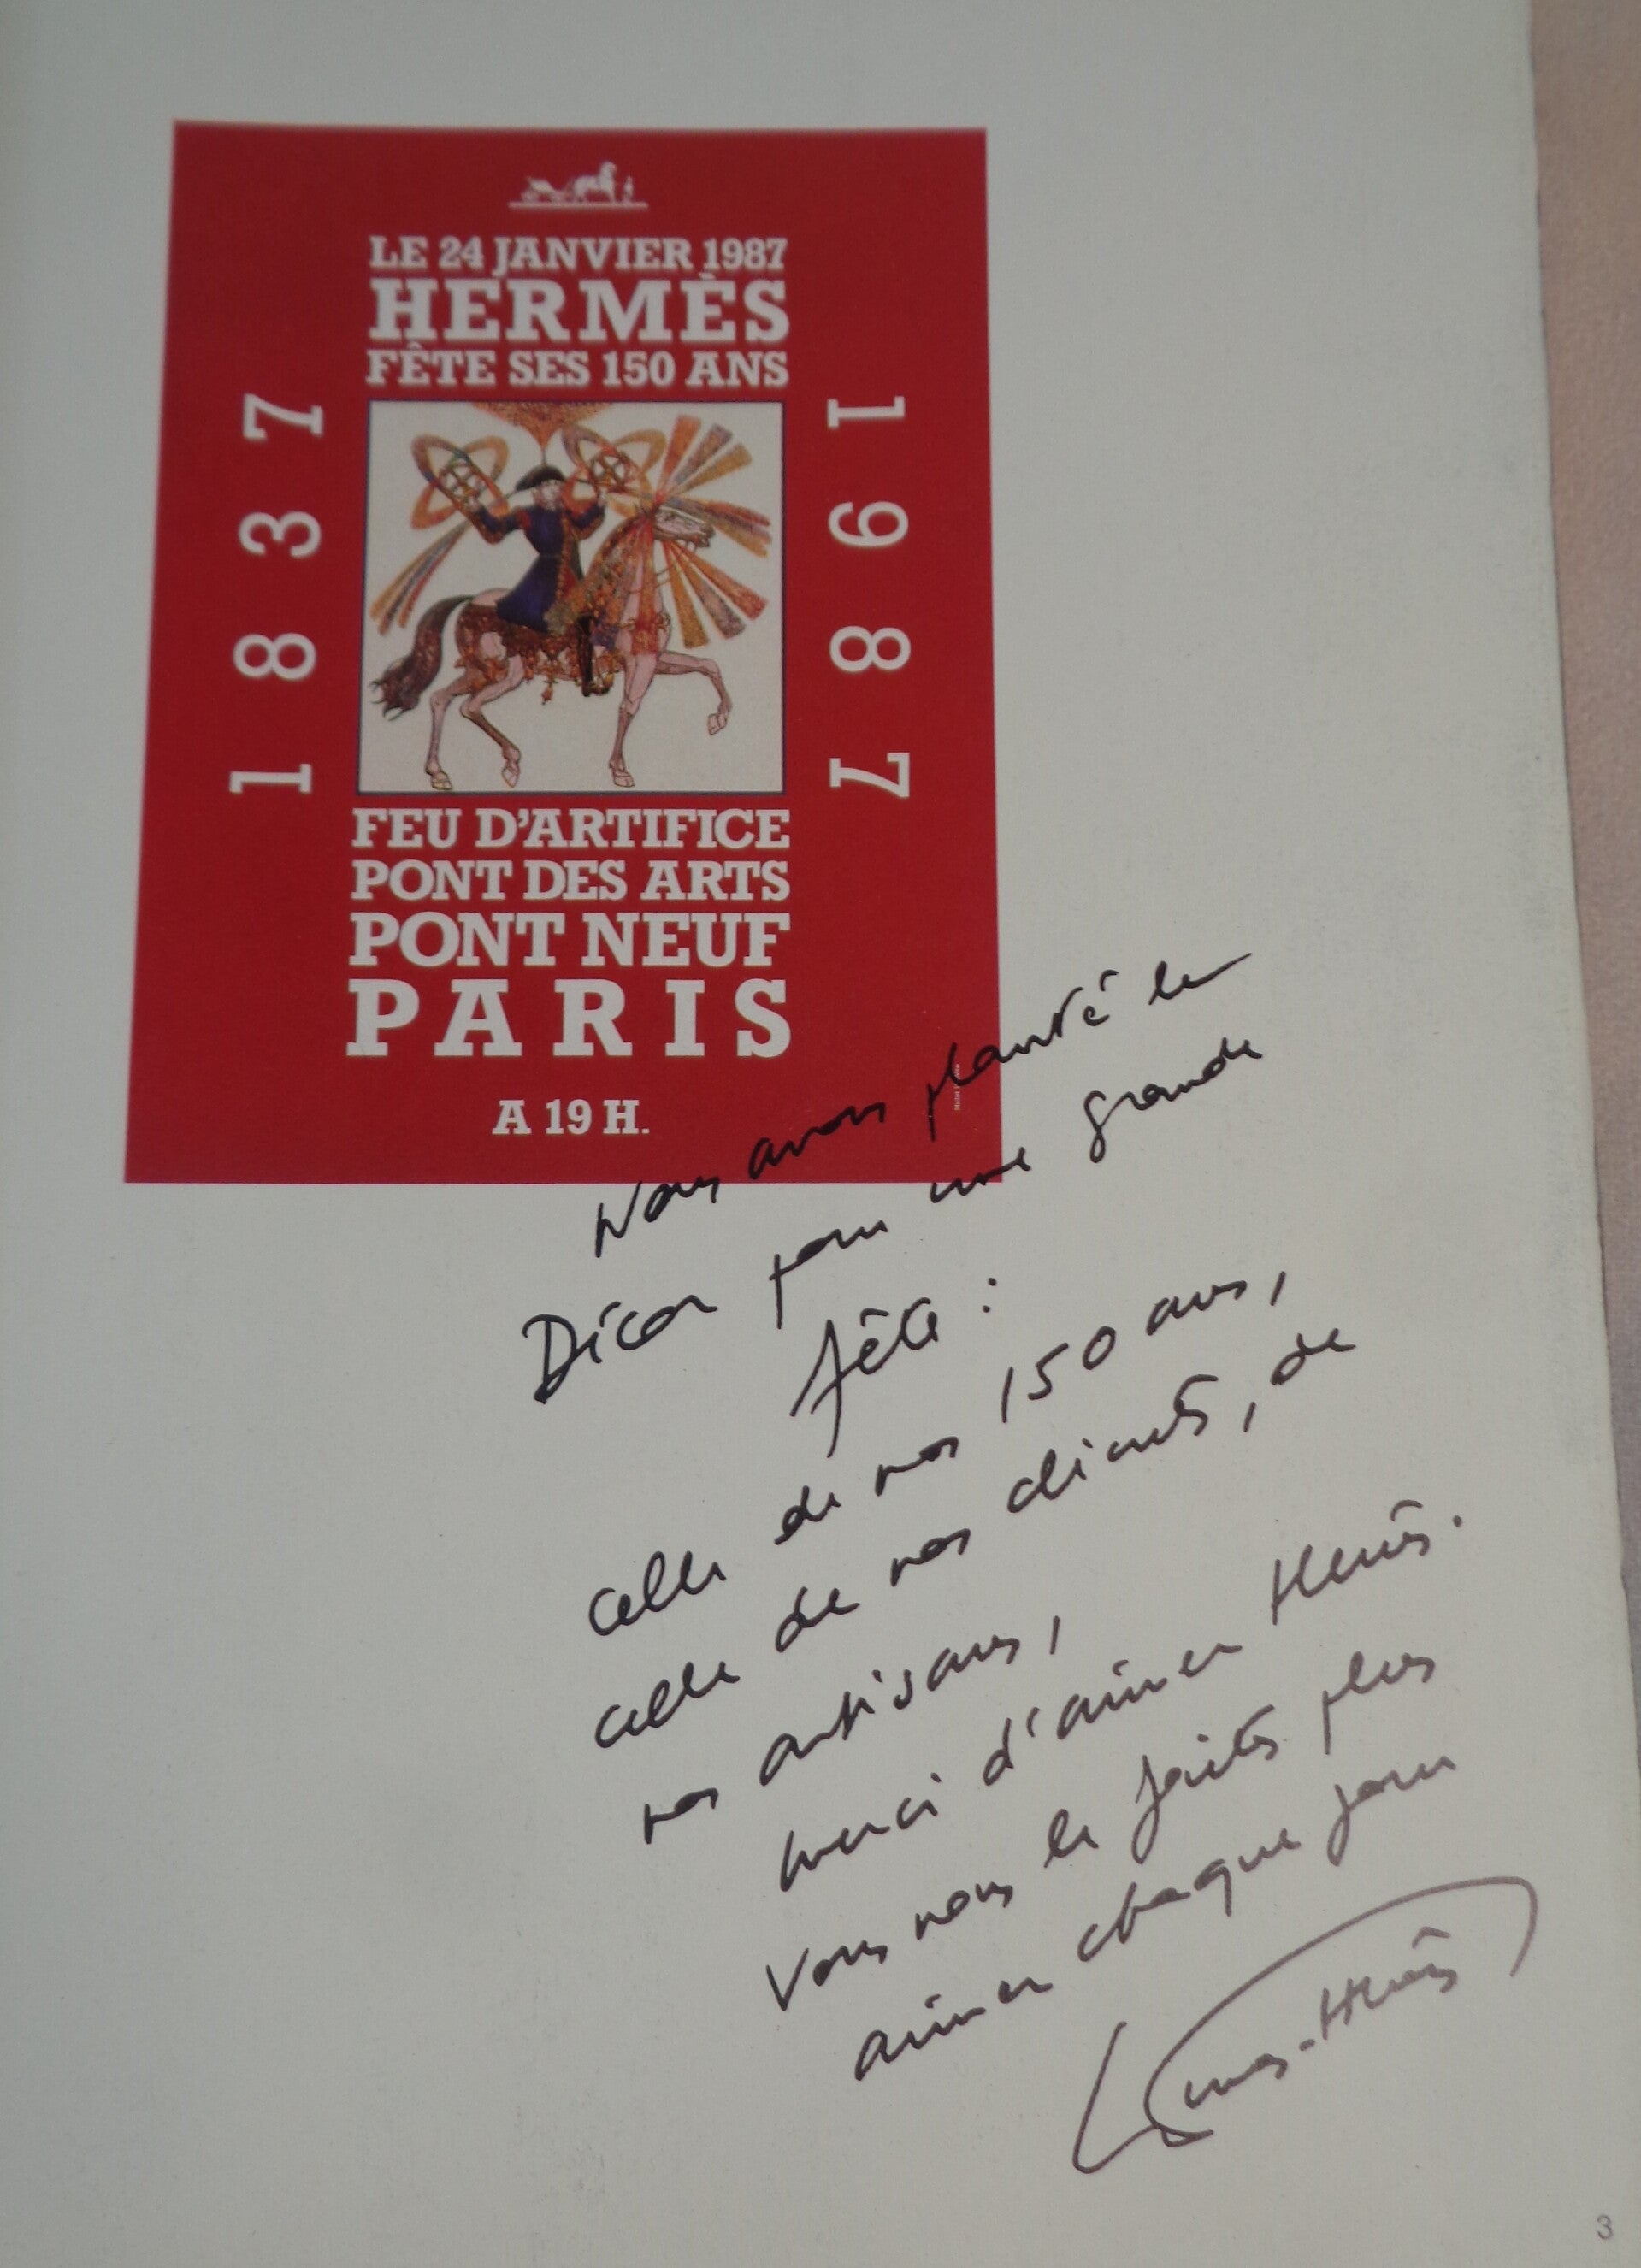 LE 24 JANVIER 1987
HERMÈS
FÊTE SES 150 ANS
1837
1987
FEU D'ARTIFICE
PONT DES ARTS
PONT NEUF
PARIS
A 19 H.
Nous avons planté le
Décor pour une grande
fête :
celle de nos 150 ans,
celle de nos clients, de
nos artisans,
merci d'aimer Hermès.
Vous nous le faites plus
aimer chaque jour
Dumas-Hermès
3